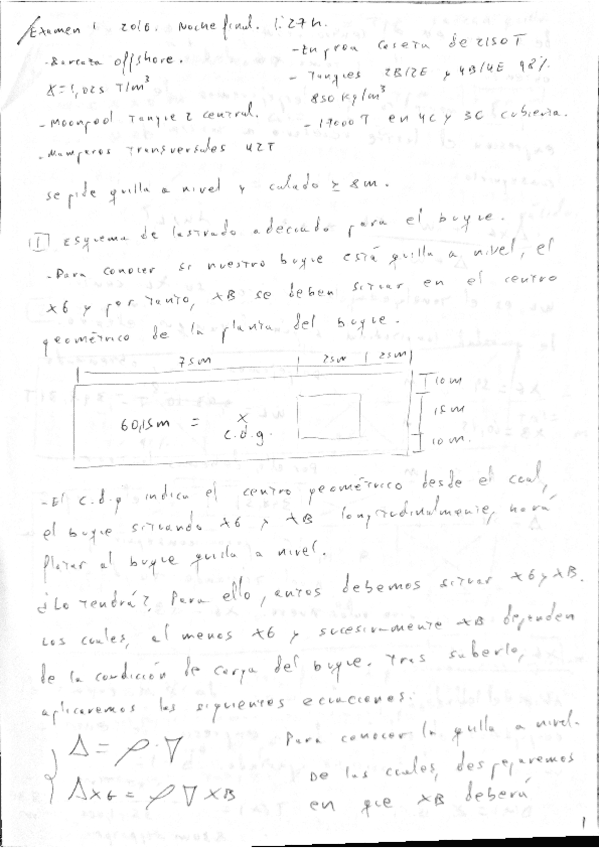 Examen 1 2016. Noche final. 1:27h.
- Barcaza offshore.
- En proa caseta de 2150 T
γ=1,025 T/m³
- Tanques 2B/2E y 4B/4E 98%
850 kg/m³
- Moonpool Tanque 2 central.
- 17000 T en 4C y 3C cubierta.
- Mamparos transversales 42T
se pide quilla a nivel y calado ≥ 8m.
I Esquema de lastrado adecuado para el buque.
- Para conocer si nuestro buque está quilla a nivel, el
XG y por tanto, XB se deben situar en el centro
geométrico de la planta del buque.
75m 25m 25m
10m
15m
10m.
60,15m = x
c.d.g.
- El c.d.g indica el centro geométrico desde el cual,
el buque situando XG y XB longitudinalmente, hará
flotar al buque quilla a nivel.
¿Lo tendrá?, Para ello, antes debemos situar XG y XB.
Los cuales, al menos XG y sucesivamente XB dependen
de la condición de carga del buque. Tras saberlo,
aplicaremos las siguientes ecuaciones:
Δ = ρ·∇
Para conocer la quilla a nivel.
De las cuales, despejaremos
ΔXG = ρ∇XB
en que XB deberá
1